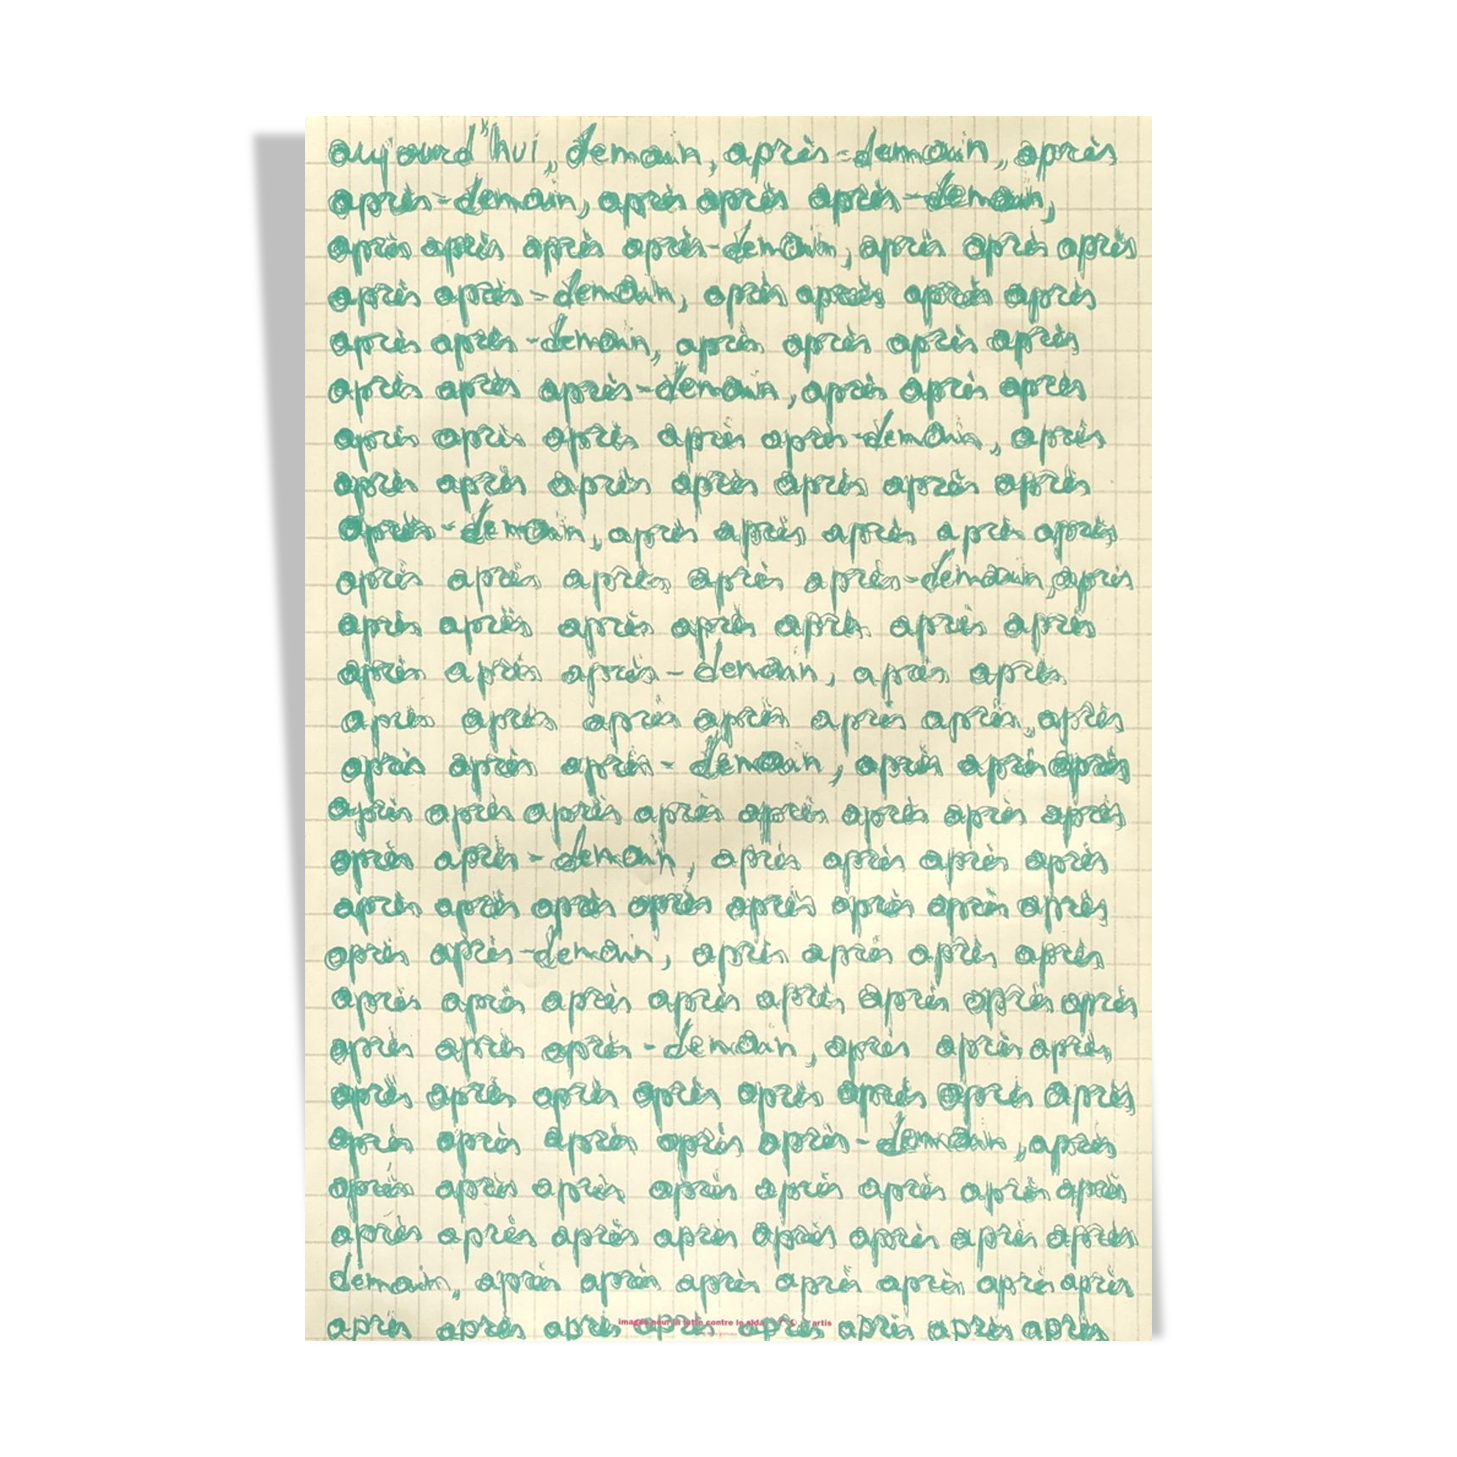 aujourd'hui, demain, après-demain, après
après-demain, après après après-demain,
après après après après-demain, après après après
après après-demain, après après après après
après après-demain, après après après après
après après après-demain, après après après
après après après après après-demain, après
après après après après après après après
après-demain, après après après après après
après après après après après-demain, après
après après après après après après après
après après après-demain, après après
après après après après après après après
après après après-demain, après après après
après après après après après après après après
après après-demain, après après après après
après après après après après après après après
après après-demain, après après après après
après après après après après après après après
après après après-demain, après après après
après après après après après après après après
après après après après après-demain, après
après après après après après après après après
après après après après après après après après
demain, après après après après après après après
après après après après après après après après
images pour la lutte contre le sida artis